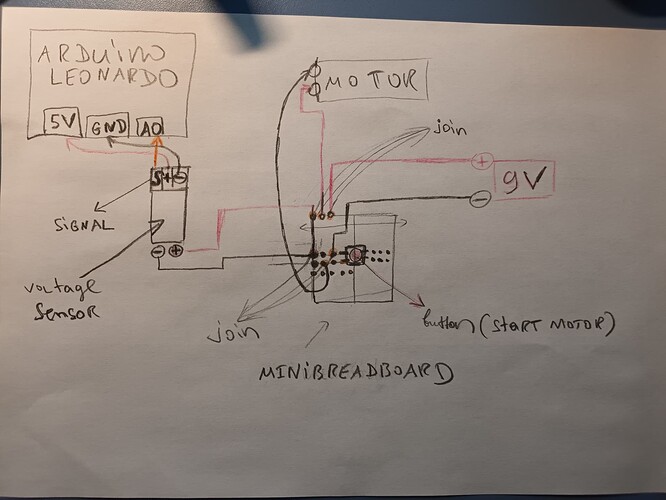 ARDUINO
LEONARDO
5V
GND
A0
S + -
SIGNAL
- +
voltage
sensor
MOTOR
join
+
9V
-
join
button (START MOTOR)
MINIBREADBOARD